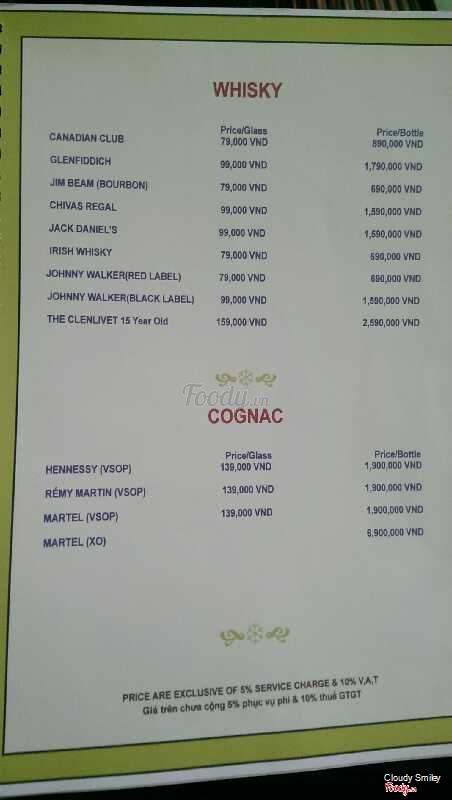 WHISKY
Price/Glass Price/Bottle
CANADIAN CLUB 79,000 VND 890,000 VND
GLENFIDDICH 99,000 VND 1,790,000 VND
JIM BEAM (BOURBON) 79,000 VND 690,000 VND
CHIVAS REGAL 99,000 VND 1,590,000 VND
JACK DANIEL'S 99,000 VND 1,590,000 VND
IRISH WHISKY 79,000 VND 690,000 VND
JOHNNY WALKER(RED LABEL) 79,000 VND 690,000 VND
JOHNNY WALKER(BLACK LABEL) 99,000 VND 1,590,000 VND
THE CLENLIVET 15 Year Old 159,000 VND 2,590,000 VND
Foody.vn
COGNAC
Price/Glass Price/Bottle
HENNESSY (VSOP) 139,000 VND 1,900,000 VND
RÉMY MARTIN (VSOP) 139,000 VND 1,900,000 VND
MARTEL (VSOP) 139,000 VND 1,900,000 VND
MARTEL (XO) 6,900,000 VND
PRICE ARE EXCLUSIVE OF 5% SERVICE CHARGE & 10% V,A,T
Giá trên chưa cộng 5% phục vụ phí & 10% thuế GTGT
Cloudy Smiley
Foody.vn